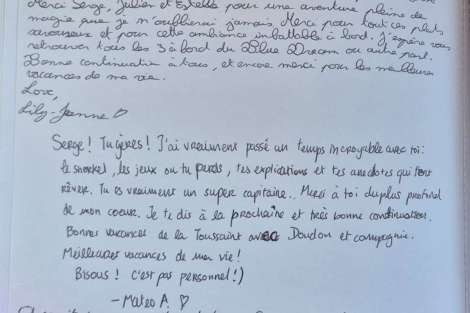 Merci Serge, Julien et Estelle pour une aventure pleine de
magie que je n'oublierai jamais. Merci pour tout ces plats
savoureux et pour cette ambiance imbattable à bord. J'espère vous
retrouver tous les 3 à bord du Blue Dream ou autre part.
Bonne continuation à tous, et encore merci pour les meilleures
vacances de ma vie.
Love,
Lily-Jeanne ♡
Serge! Tu gères! J'ai vraiment passé un temps incroyable avec toi:
le snorkel, les jeux ou tu perds, tes explications et tes anecdotes qui font
rêver. Tu es vraiment un super capitaine. Merci à toi du plus profond
de mon coeur. Je te dis à la prochaine et très bonne continuation.
Bonnes vacances de la Toussaint avec Doudou et compagnie.
Meilleures vacances de ma vie!
Bisous! C'est pas personnel!)
- Mateo A ♡